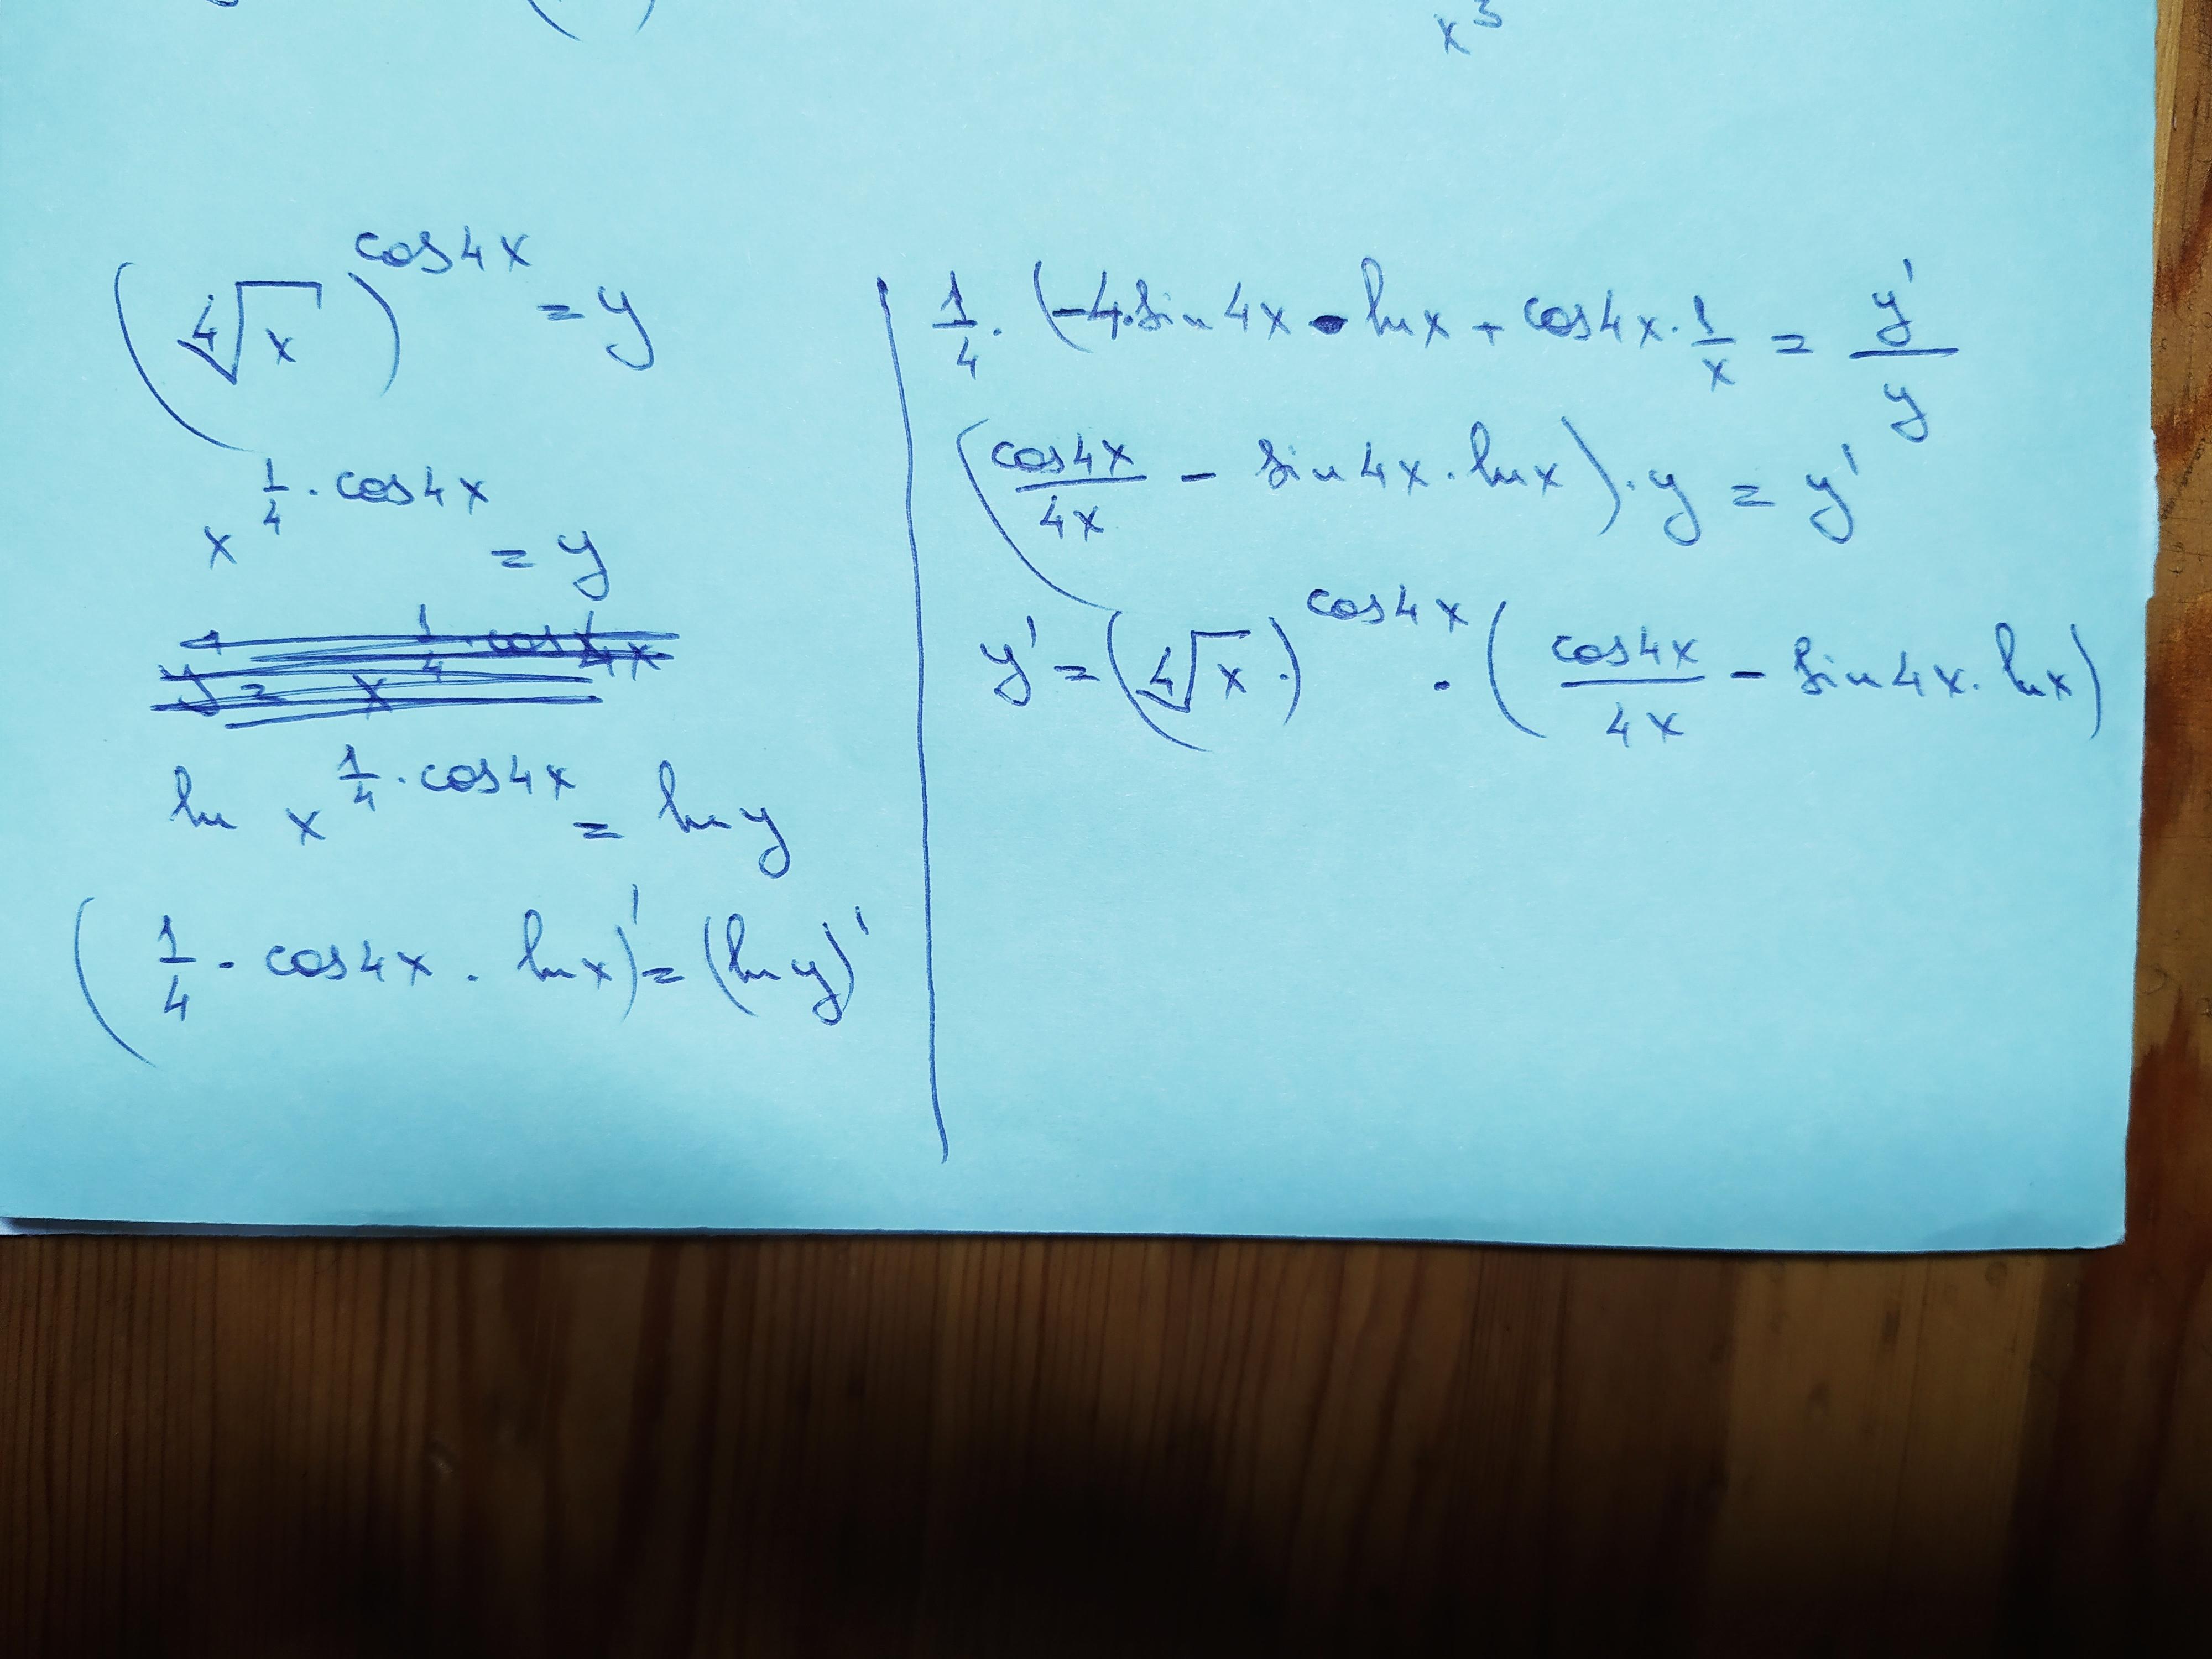 x³
(∜x)^cos4x = y
x^(1/4 · cos4x) = y
y = x^(1/4 · cos4x)
ln x^(1/4 · cos4x) = ln y
(1/4 · cos4x · lnx)' = (ln y)'
1/4 · (-4·sin4x · lnx + cos4x · 1/x = y'/y
(cos4x/4x - sin4x · lnx) · y = y'
y' = (∜x ·)^cos4x · (cos4x/4x - sin4x · lnx)